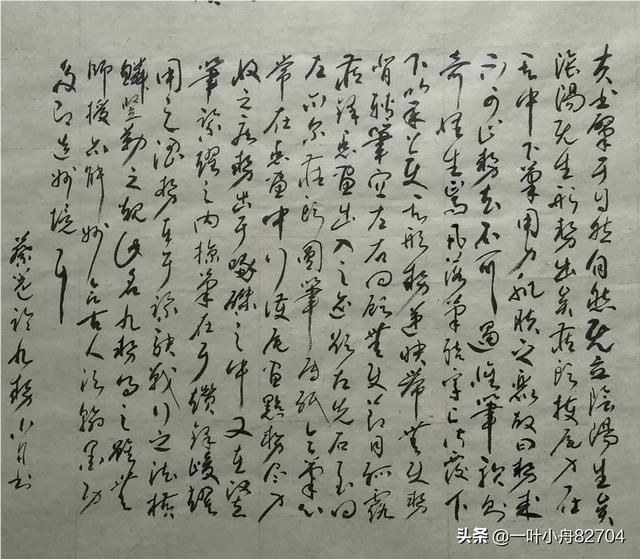 夫書肇于自然自然既立陰陽生矣
陰陽既生形勢出矣藏頭護尾力在
字中下筆用力肌膚之麗故曰勢來
不可止勢去不可遏惟筆軟則
奇怪生焉凡落筆結字上皆覆下
下以承上使其形勢遞映帶無使勢
背轉筆宜左右回顧無使節目孤露
藏鋒點畫出入之迹欲左先右至回
左亦尔藏頭圓筆屬紙令筆心
常在點畫中行護尾畫點勢盡力
收之疾勢出于啄磔之中又在竪
筆緊趯之内掠筆在于趲鋒峻趯
用之澀勢在于緊駃戰行之法橫
鱗竪勒之規此名九勢得之雖無
師授亦能妙合古人須翰墨功
多即造妙境耳
蔡邕論九勢小舟書
头条 @一叶小舟82704